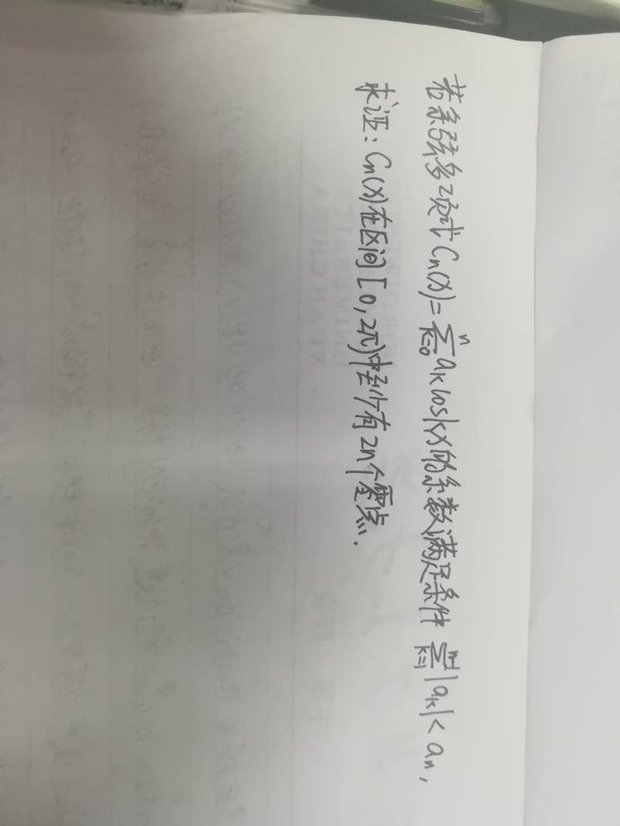 若余弦多项式 Cn(x)=∑_{k=0}^{n} a_k cos kx 的系数满足条件 ∑_{k=1}^{n-1} |a_k| < a_n,
求证: Cn(x) 在区间 [0, 2π) 中至少有 2n 个零点.